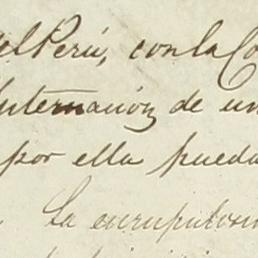 del Perú, con la Co
Internación de un
por ella pueda
La escrupulosi